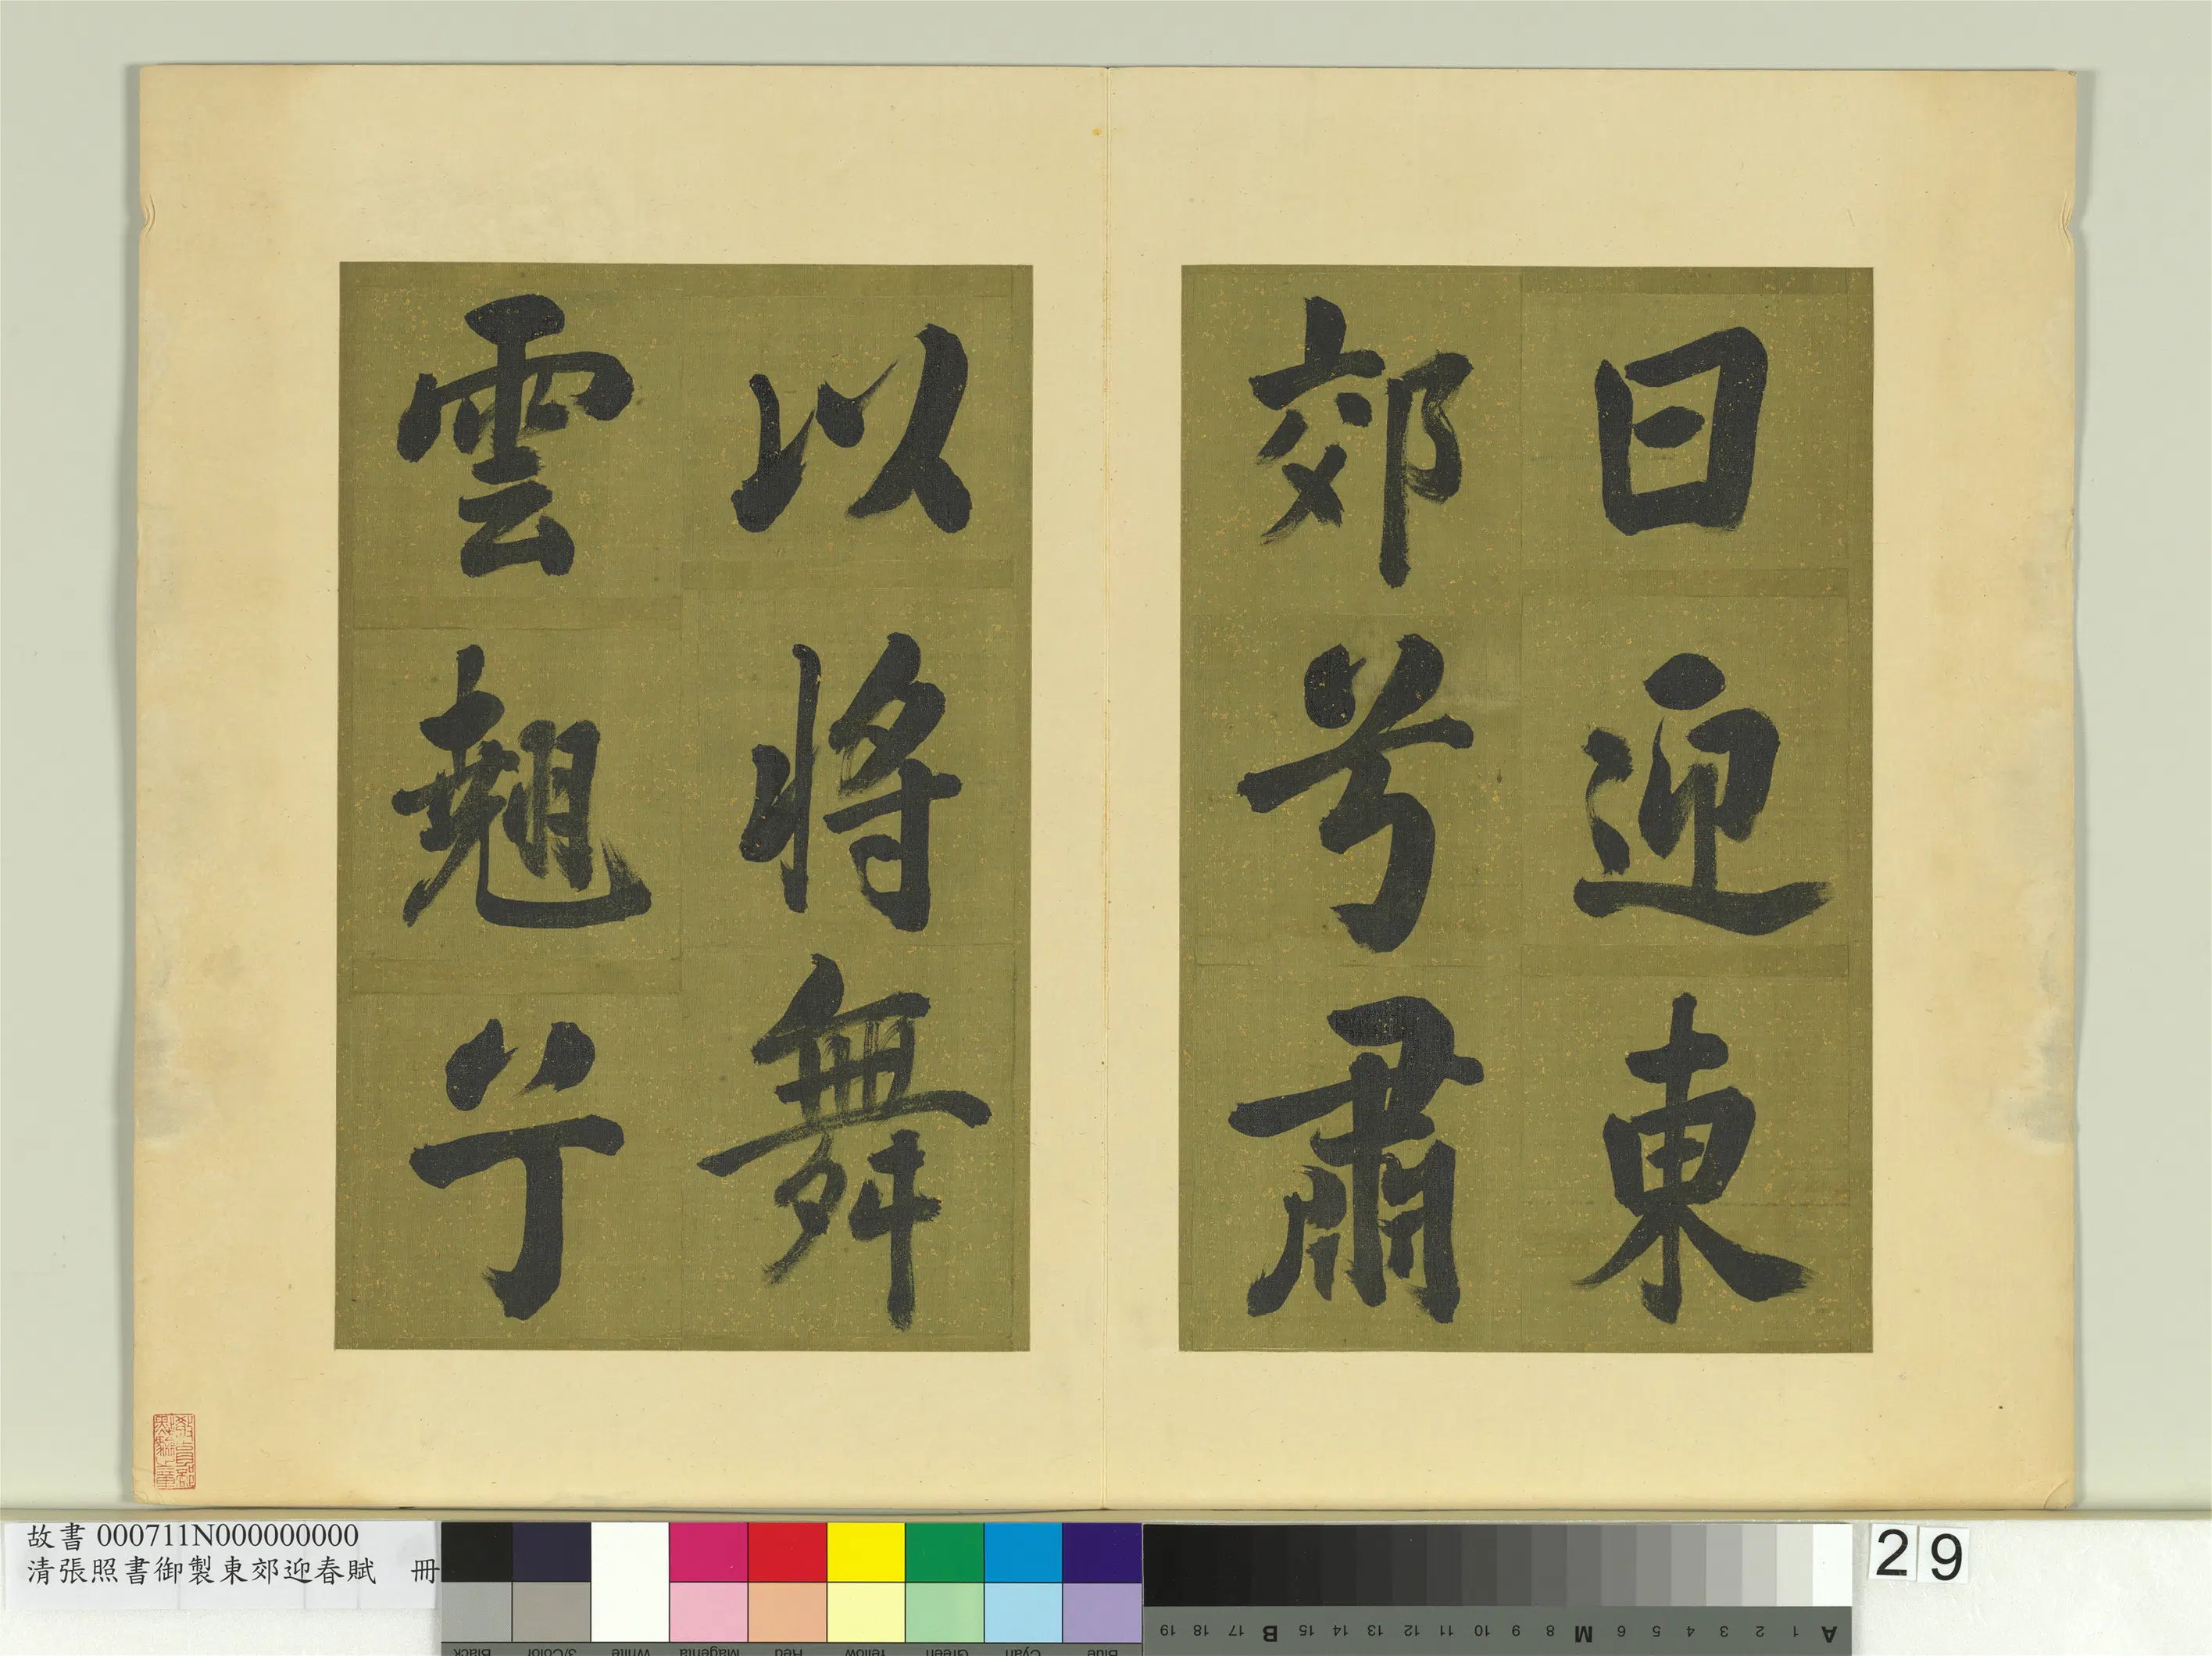 曰迎東
郊兮肅
以將舞
雲翹兮
故書 000711N000000000
清張照書御製東郊迎春賦　冊
29
Black 3/Color White Magenta Red Yellow Green Cyan Blue
A 1 2 3 4 5 6 M 8 9 10 11 12 13 14 15 B 17 18 19